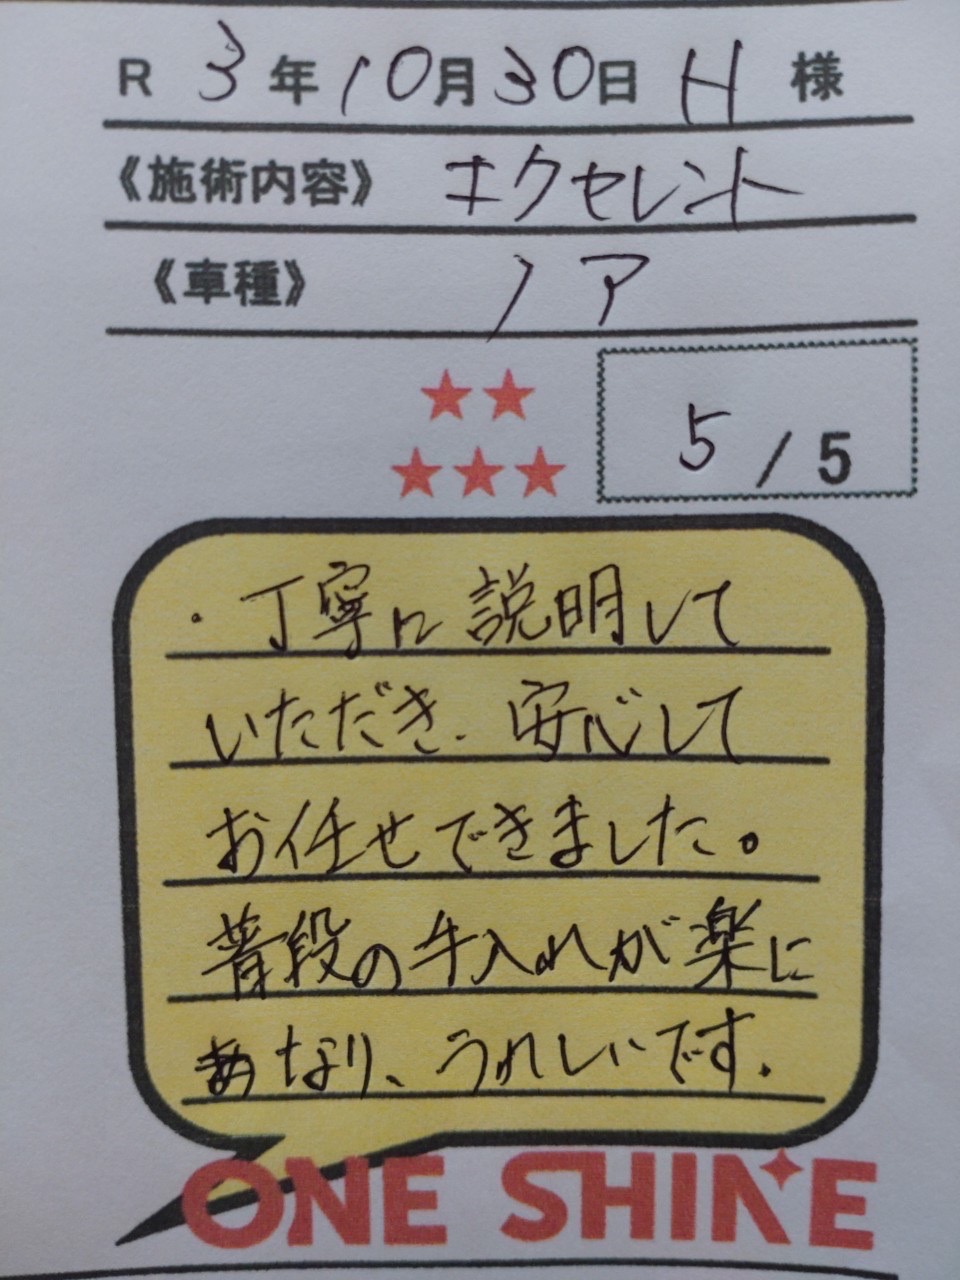 R 3年10月30日 H 様
《施術内容》 エクセレント
《車種》 ノア
5 / 5
・丁寧に説明して
いただき、安心して
お任せできました。
普段の手入れが楽に
なり、うれしいです.
ONE SHINE